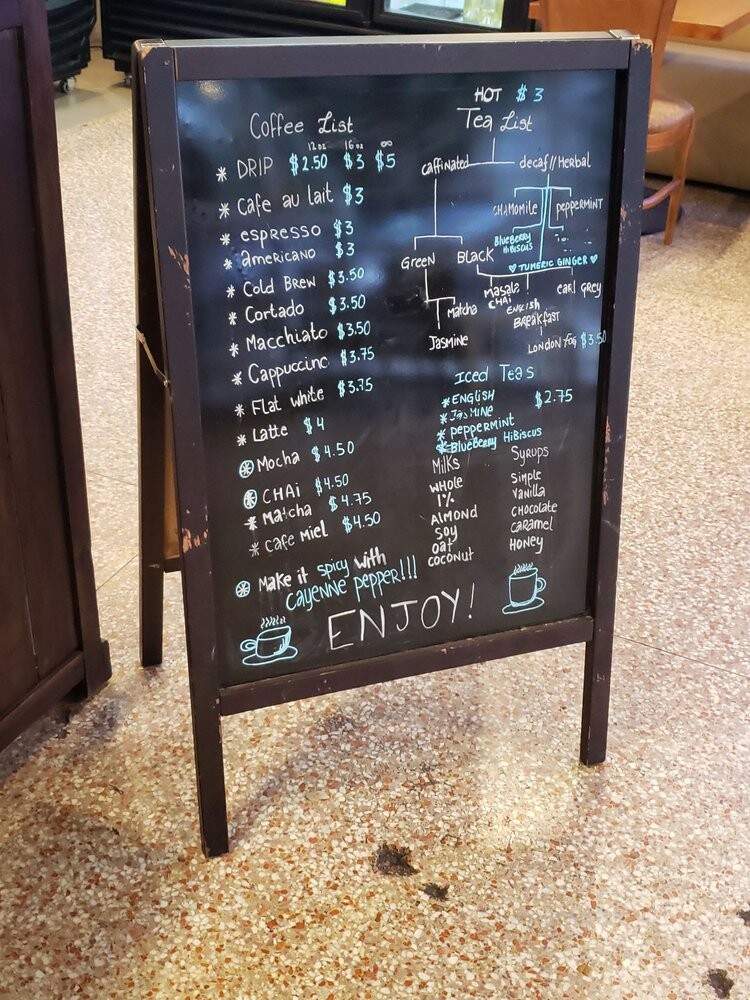 Coffee List
12oz 16oz ∞
* DRIP $2.50 $3 $5
* Cafe au lait $3
* espresso $3
* americano $3
* Cold Brew $3.50
* Cortado $3.50
* Macchiato $3.50
* Cappuccino $3.75
* Flat white $3.75
* Latte $4
* Mocha $4.50
* CHAi $4.50
* Matcha $4.75
* Cafe Miel $4.50
* Make it spicy with
cayenne pepper!!!
ENJOY!
HOT $3
Tea List
caffinated decaf//Herbal
CHAMOMile PePPERMINT
BlueBeRRy
HiBiscus
♥ TUMERIC GINGER ♥
GReeN BLACK
Matcha
Jasmine
Masala
CHAi
eaRl GRey
ENGLisH
BReaKfast
LONDON FOG $3.50
Iced Teas
* ENGLISH $2.75
* JasMINE
* PePPERMINT
* BlueBeRRy HiBiscus
Milks
WHole
1%
Almond
Soy
oat
coconut
Syrups
Simple
Vanilla
CHocolate
caramel
Honey